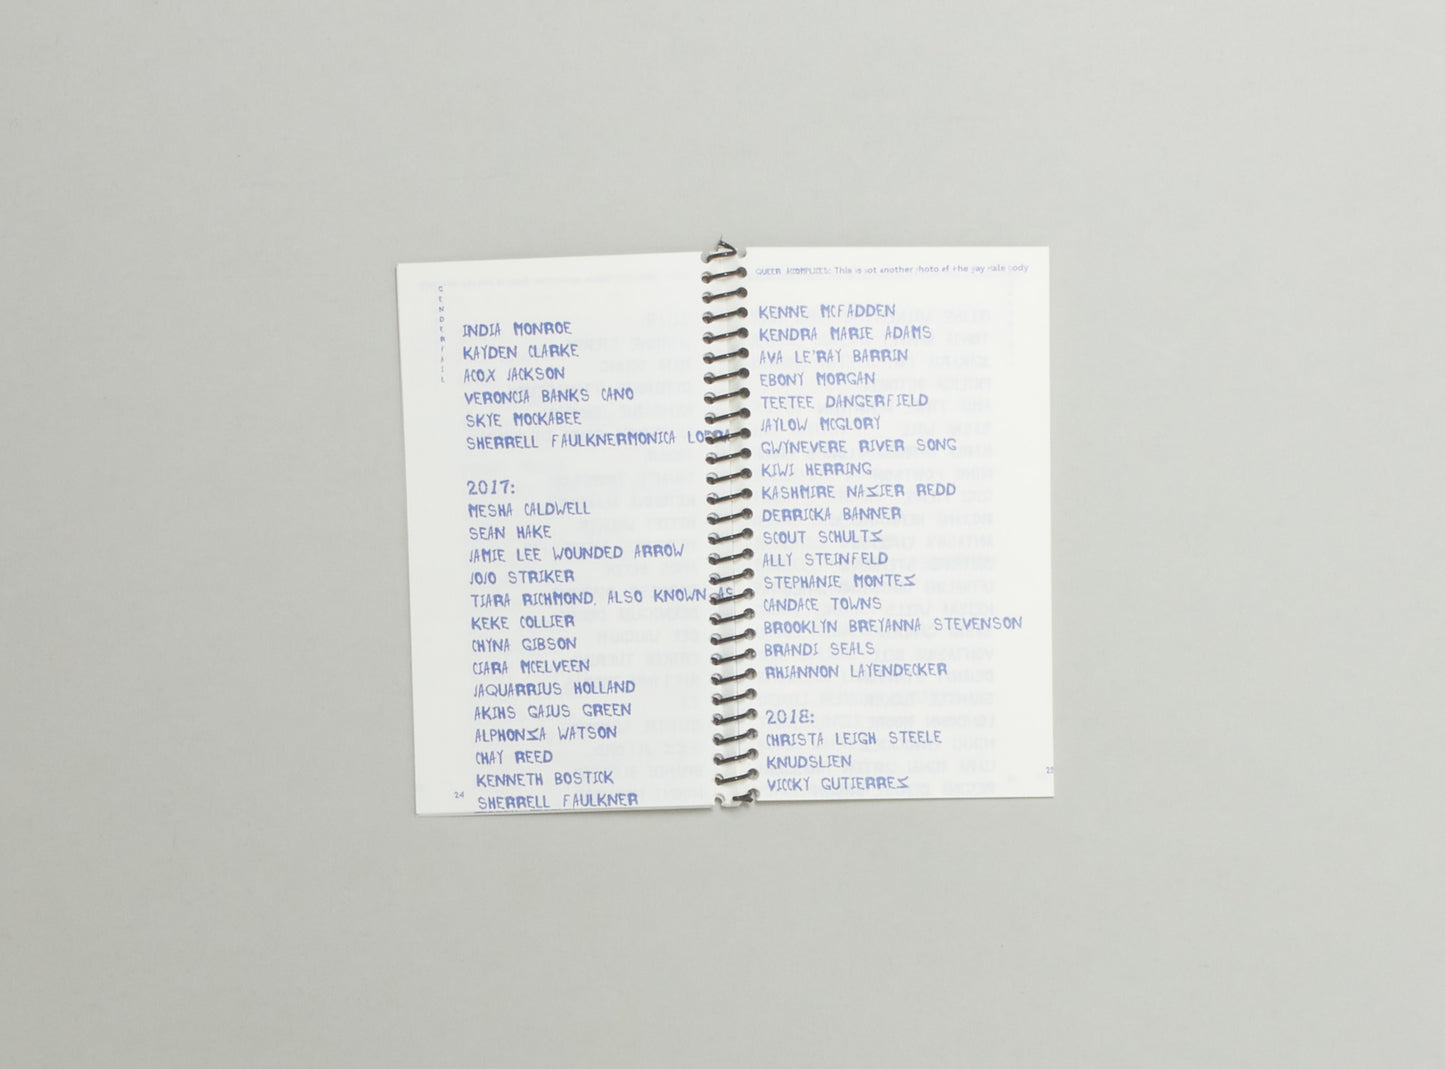 GENDERFAIL
INDIA MONROE
KAYDEN CLARKE
ACOX JACKSON
VERONCIA BANKS CANO
SKYE MOCKABEE
SHERRELL FAULKNERMONICA
2017:
MESHA CALDWELL
SEAN HAKE
JAMIE LEE WOUNDED ARROW
JOJO STRIKER
TIARA RICHMOND, ALSO KNOWN AS
KEKE COLLIER
CHYNA GIBSON
CIARA MCELVEEN
JAQUARRIUS HOLLAND
AKIHS GAIUS GREEN
ALPHONZA WATSON
CHAY REED
KENNETH BOSTICK
SHERRELL FAULKNER
24
QUEER ACOMPLICES: This is not another photo of the gay male body
KENNE MCFADDEN
KENDRA MARIE ADAMS
AVA LE'RAY BARRIN
EBONY MORGAN
TEETEE DANGERFIELD
JAYLOW MCGLORY
GWYNEVERE RIVER SONG
KIWI HERRING
KASHMIRE NAZIER REDD
DERRICKA BANNER
SCOUT SCHULTZ
ALLY STEINFELD
STEPHANIE MONTEZ
CANDACE TOWNS
BROOKLYN BREYANNA STEVENSON
BRANDI SEALS
RHIANNON LAYENDECKER
2018:
CHRISTA LEIGH STEELE
KNUDSLIEN
VICCKY GUTIERREZ